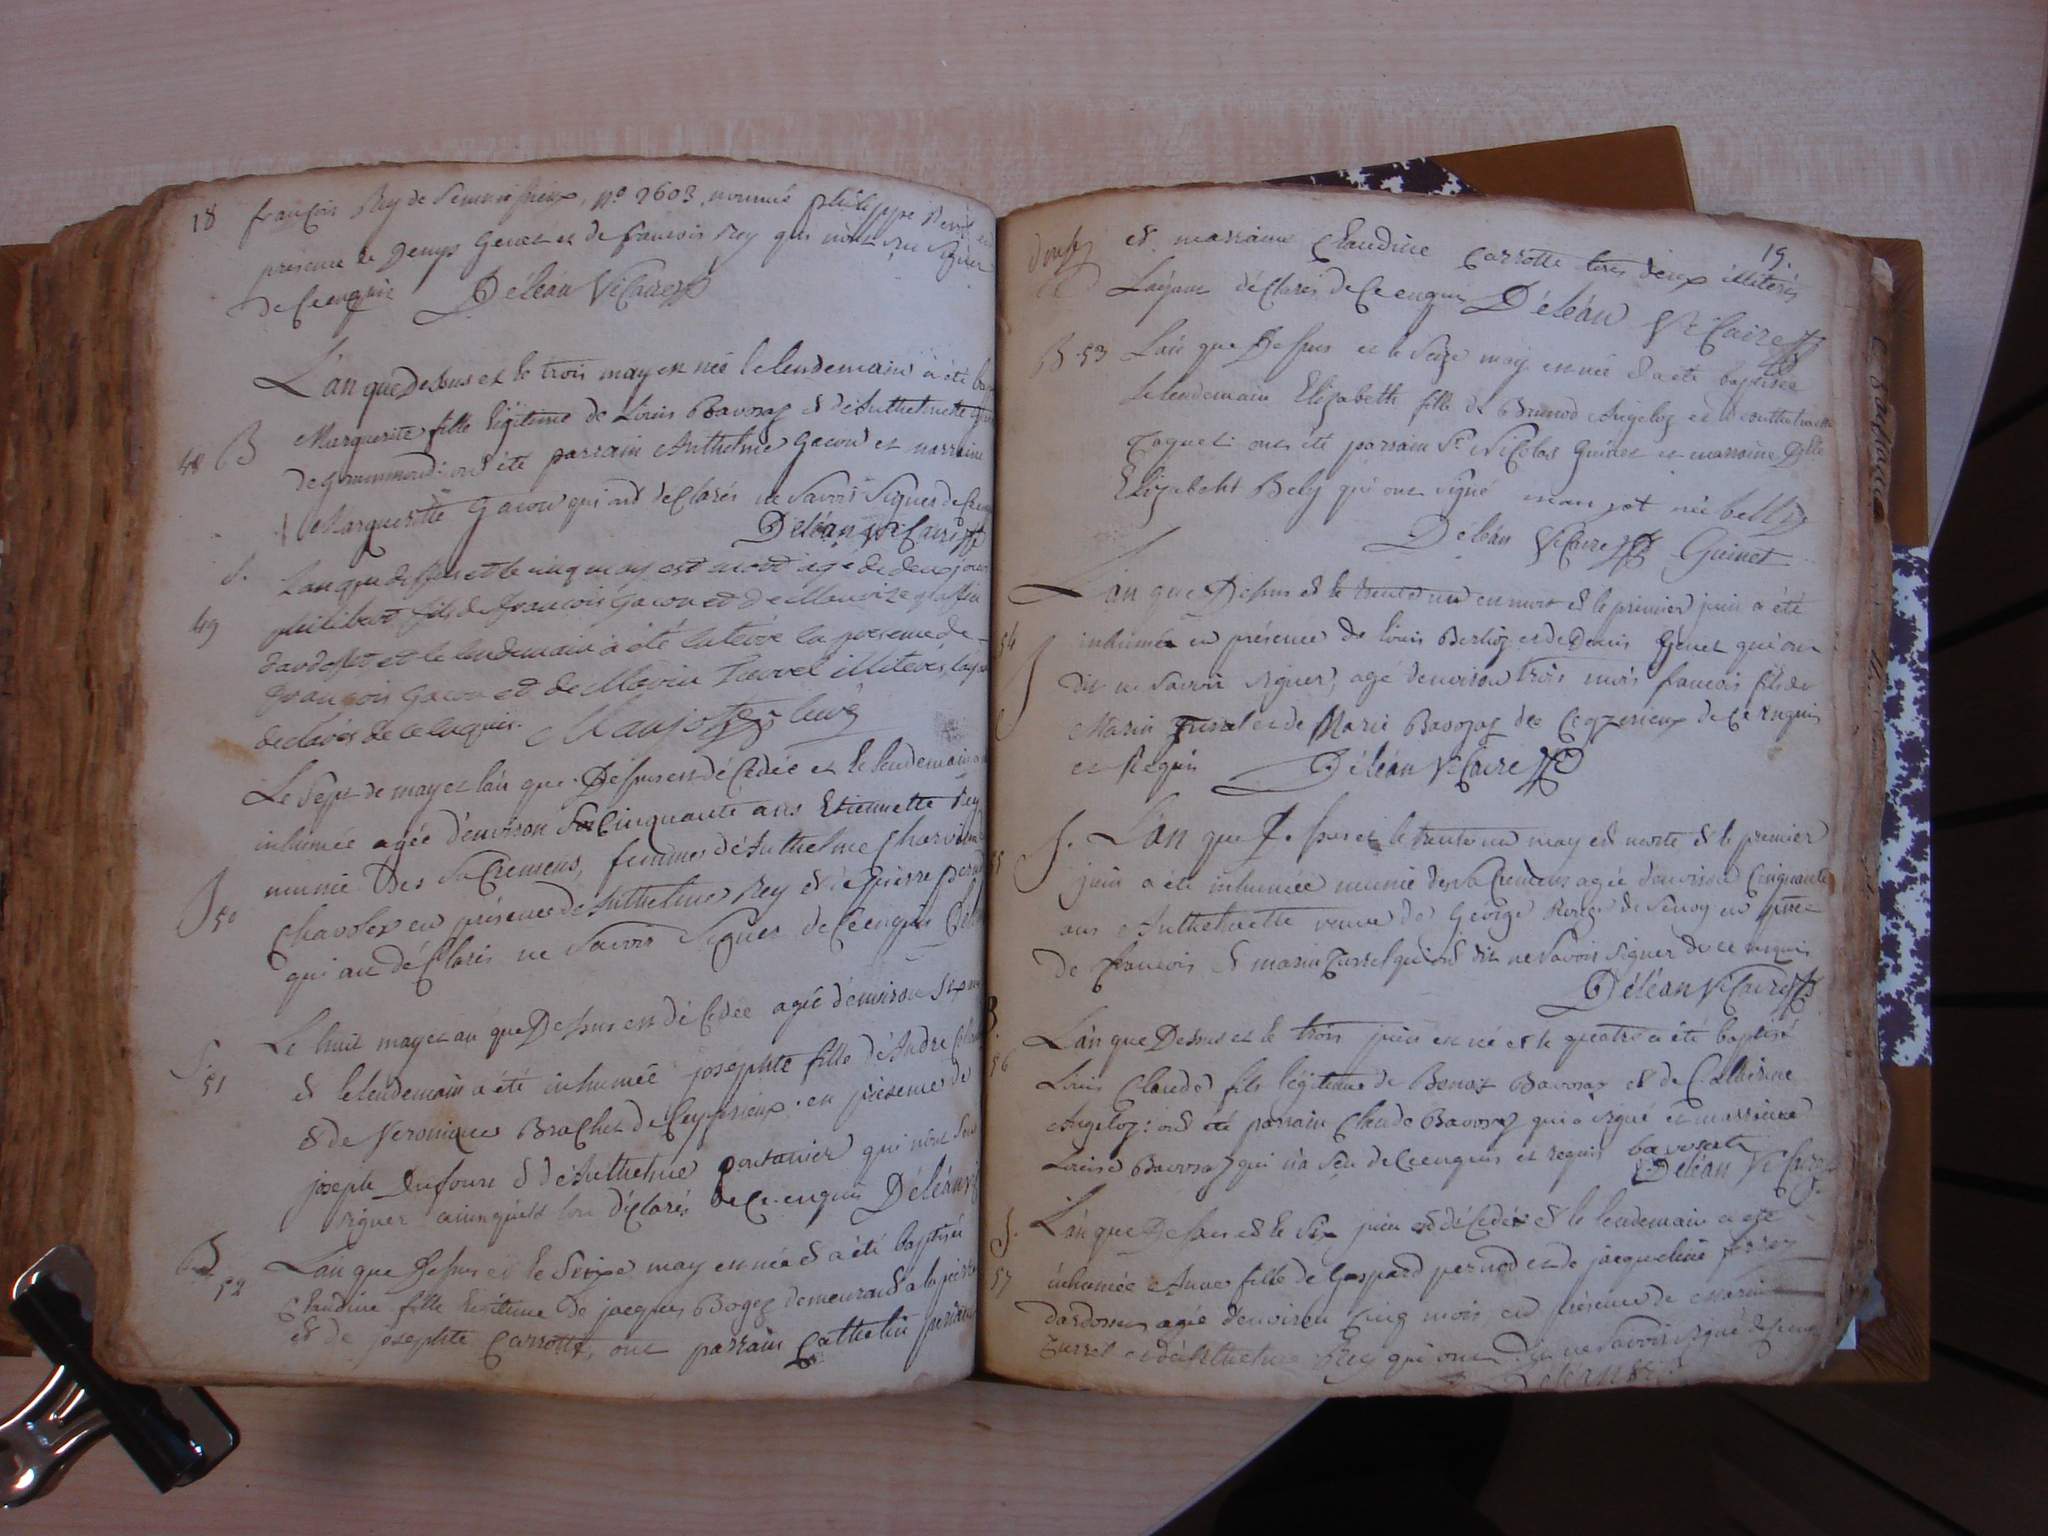 18
françois Rey de Seminissieux, n° 2603, nommé philippe
presence de Denys Genet et de francois Rey qui n'ont su signer
de Ce enquis Deléan Vicaire
L'an que Dessus et le trois may est née le lendemain a été
48 B Marguerite fille légitime de Louis Bavozaz & d'Anthelmette
de Grammond: ont été parrain Anthelme Gacon et marraine
Marguerite Gacon qui ont déClarés ne Savoir Signer de
Deléan Vicaire
S. L'an que dessus et le cinq may est mort age de deux jours
49 philibert fils de francois Gacon et de
et le lendemain a été enterré en presence de
francois Gacon et de Marin Turrel illiterés,
declarés de ce enquis. Manjot curé
Le sept de may et l'an que Dessus est déCédée et le lendemain
inhumée agée d'environ Cinquante ans Etiennette Rey
munie Des SaCremens, femme d'Anthelme Charvin
S 50 Chavolex en présence de Anthelme Rey & de pierre
qui ont déClarés ne Savoir Signer de Ce enquis
Le huit may et an que Dessus est déCédée agée d'environ
S. 51 & le lendemain a été inhumée josephte fille d'André
& de Veronique BraChet de Ceyzerieux en présence de
joseph Dufour & d'Anthelme pontanier qui n'ont Seu
signer ainsi qu'ils l'on déClarés de Ce enquis Déléan
B 52 L'an que Dessus et le Seize may est née & a été baptisée
Claudine fille légitime de jacques Bogez demeurand a la
& de josephte Carrotte, ont parrain Cathelin
19.
et marraine Claudine Carrotte tous deux illiterés
L'ayant déClarés de Ce enquis Déléan ViCaire
B 53 L'an que Dessus et le Seize may est née & a été baptisée
le lendemain Elizabeth fille de Brunod Angeloz et d'Anthelmette
Jaquet: ont été parrain Sr Nicolas Guinet et marraine Dlle
Elizabeht Bely qui ont signé manjot née belly
Déléan ViCaire Guinet
L'an que Dessus et le trente un est mort & le premier juin a été
54 inhumé en présence de louis Berlioz et de Denis Genet qui ont
S dit ne Savoir signer, age d'environ trois mois francois fils de
Marin Turrel et de Marie Bavozaz de Ceyzerieux de Ce enquis
et Requis Déléan ViCaire
S. L'an que Dessus et le trente un may est morte & le premier
55 juin a été inhumée munie des SaCremens agée d'environ Cinquante
ans Anthelmette veuve de George Roux de Senoy en
de francois & marin Turrel qui ont dit ne savoir signer de ce enquis
Déléan ViCaire
B.
L'an que Dessus et le trois juin est né et le quatre a été baptisé
56 Louis Claude fils légitime de Benoit Bavozaz et de Catherine
Angeloz: ont été parrain Claude Bavozaz qui a signé et marraine
Louise Bavozaz qui n'a Seu de Ce enquis et requis bavozat
Déléan ViCaire
S. L'an que Dessus et le Six juin est déCédée & le lendemain a été
57 inhumée Anne fille de Gaspard pernod et de jacqueline
agée d'environ Cinq mois, en présence de marin
Turrel et d'Anthelme Rey qui ont Dit ne savoir signer de Ce enquis
Déléan